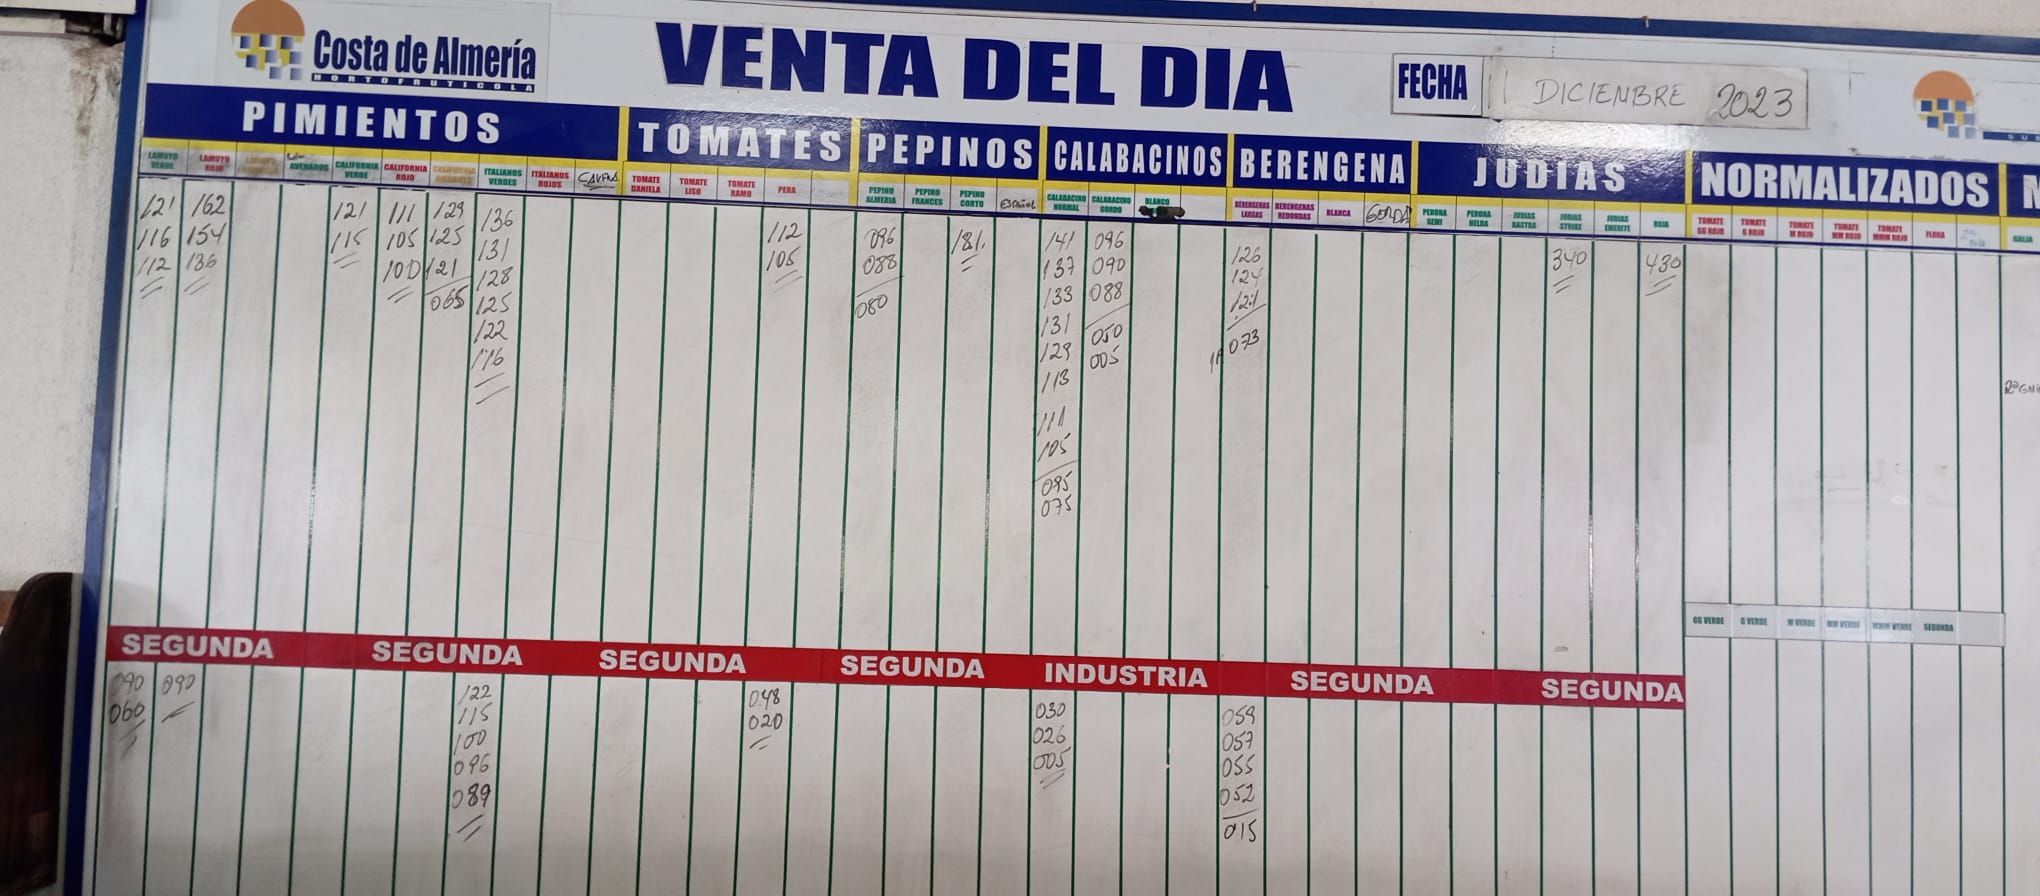 Costa de Almería
HORTOFRUTICOLA
VENTA DEL DIA
FECHA
11 DICIEMBRE 2023
PIMIENTOS
TOMATES
PEPINOS
CALABACINOS
BERENGENA
JUDIAS
NORMALIZADOS
LAMUYO VERDE
LAMUYO ROJO
CALIFORNIA VERDE
CALIFORNIA ROJO
CALIFORNIA AMARILLO
ITALIANOS VERDES
ITALIANOS ROJOS
TOMATE DANIELA
TOMATE LISO
TOMATE RAMO
PERA
PEPINO ALMERIA
PEPINO FRANCES
PEPINO CORTO
ESPAÑOL
CALABACINO NORMAL
CALABACINO GORDO
BLANCO
BERENGENAS LARGAS
BERENGENAS REDONDAS
BLANCA
GORDA
PERONA SEMI
PERONA HELDA
JUDIAS RASTRA
JUDIAS STRIKE
JUDIAS EMERITE
ROJA
TOMATE GG ROJO
TOMATE G ROJO
TOMATE M ROJO
TOMATE MM ROJO
TOMATE MMM ROJO
FLORA
GALIA
121 162 121 111 129 136 112 096 181 141 096 126 340 430
116 154 115 105 125 131 105 088 137 090 124
112 136 100 121 128 080 133 088 121
065 125 131 050 073
122 129 005
116 113
111
105
095
075
GG VERDE
G VERDE
M VERDE
MM VERDE
MMM VERDE
SEGUNDA
SEGUNDA
SEGUNDA
SEGUNDA
SEGUNDA
INDUSTRIA
SEGUNDA
SEGUNDA
090 090 122 048 030 059
060 115 020 026 057
100 005 055
096 052
089 015